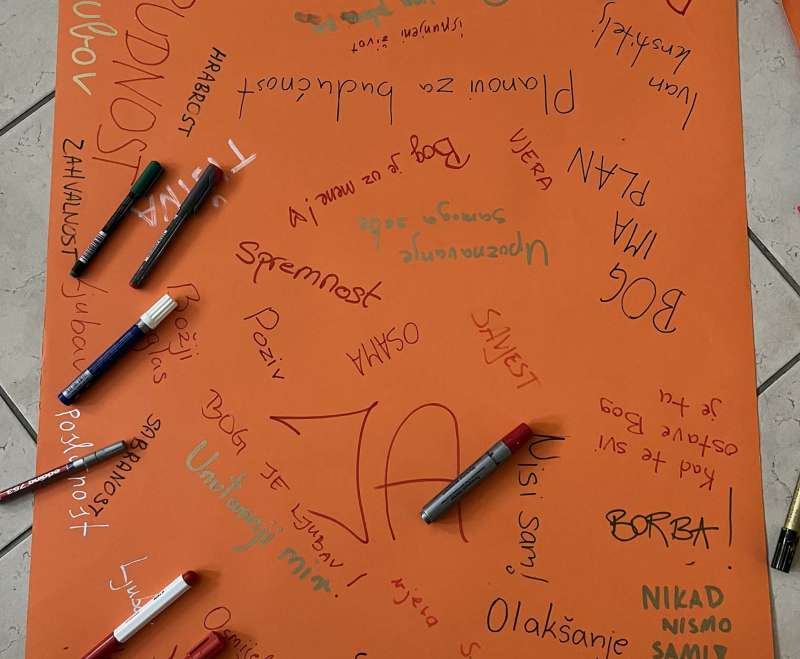 ispunjeni život
Ivan
krstitelj
HRABROST
Planovi za budućnost
ZAHVALNOST
Bog je uz mene!
VJERA
BOG
IMA
PLAN
Upoznavanje
samoga sebe
Spremnost
Ljubav
Božji
glas
Poziv
OSAMA
SAVJEST
Kad te svi
ostave Bog
je tu
poslušnost
SABRANOST
BOG JE LJUBAV!
JA
Unutarnji mir.
Nisi sam!
BORBA!
vjera
Olakšanje
NIKAD
NISMO
SAMI
edding 753